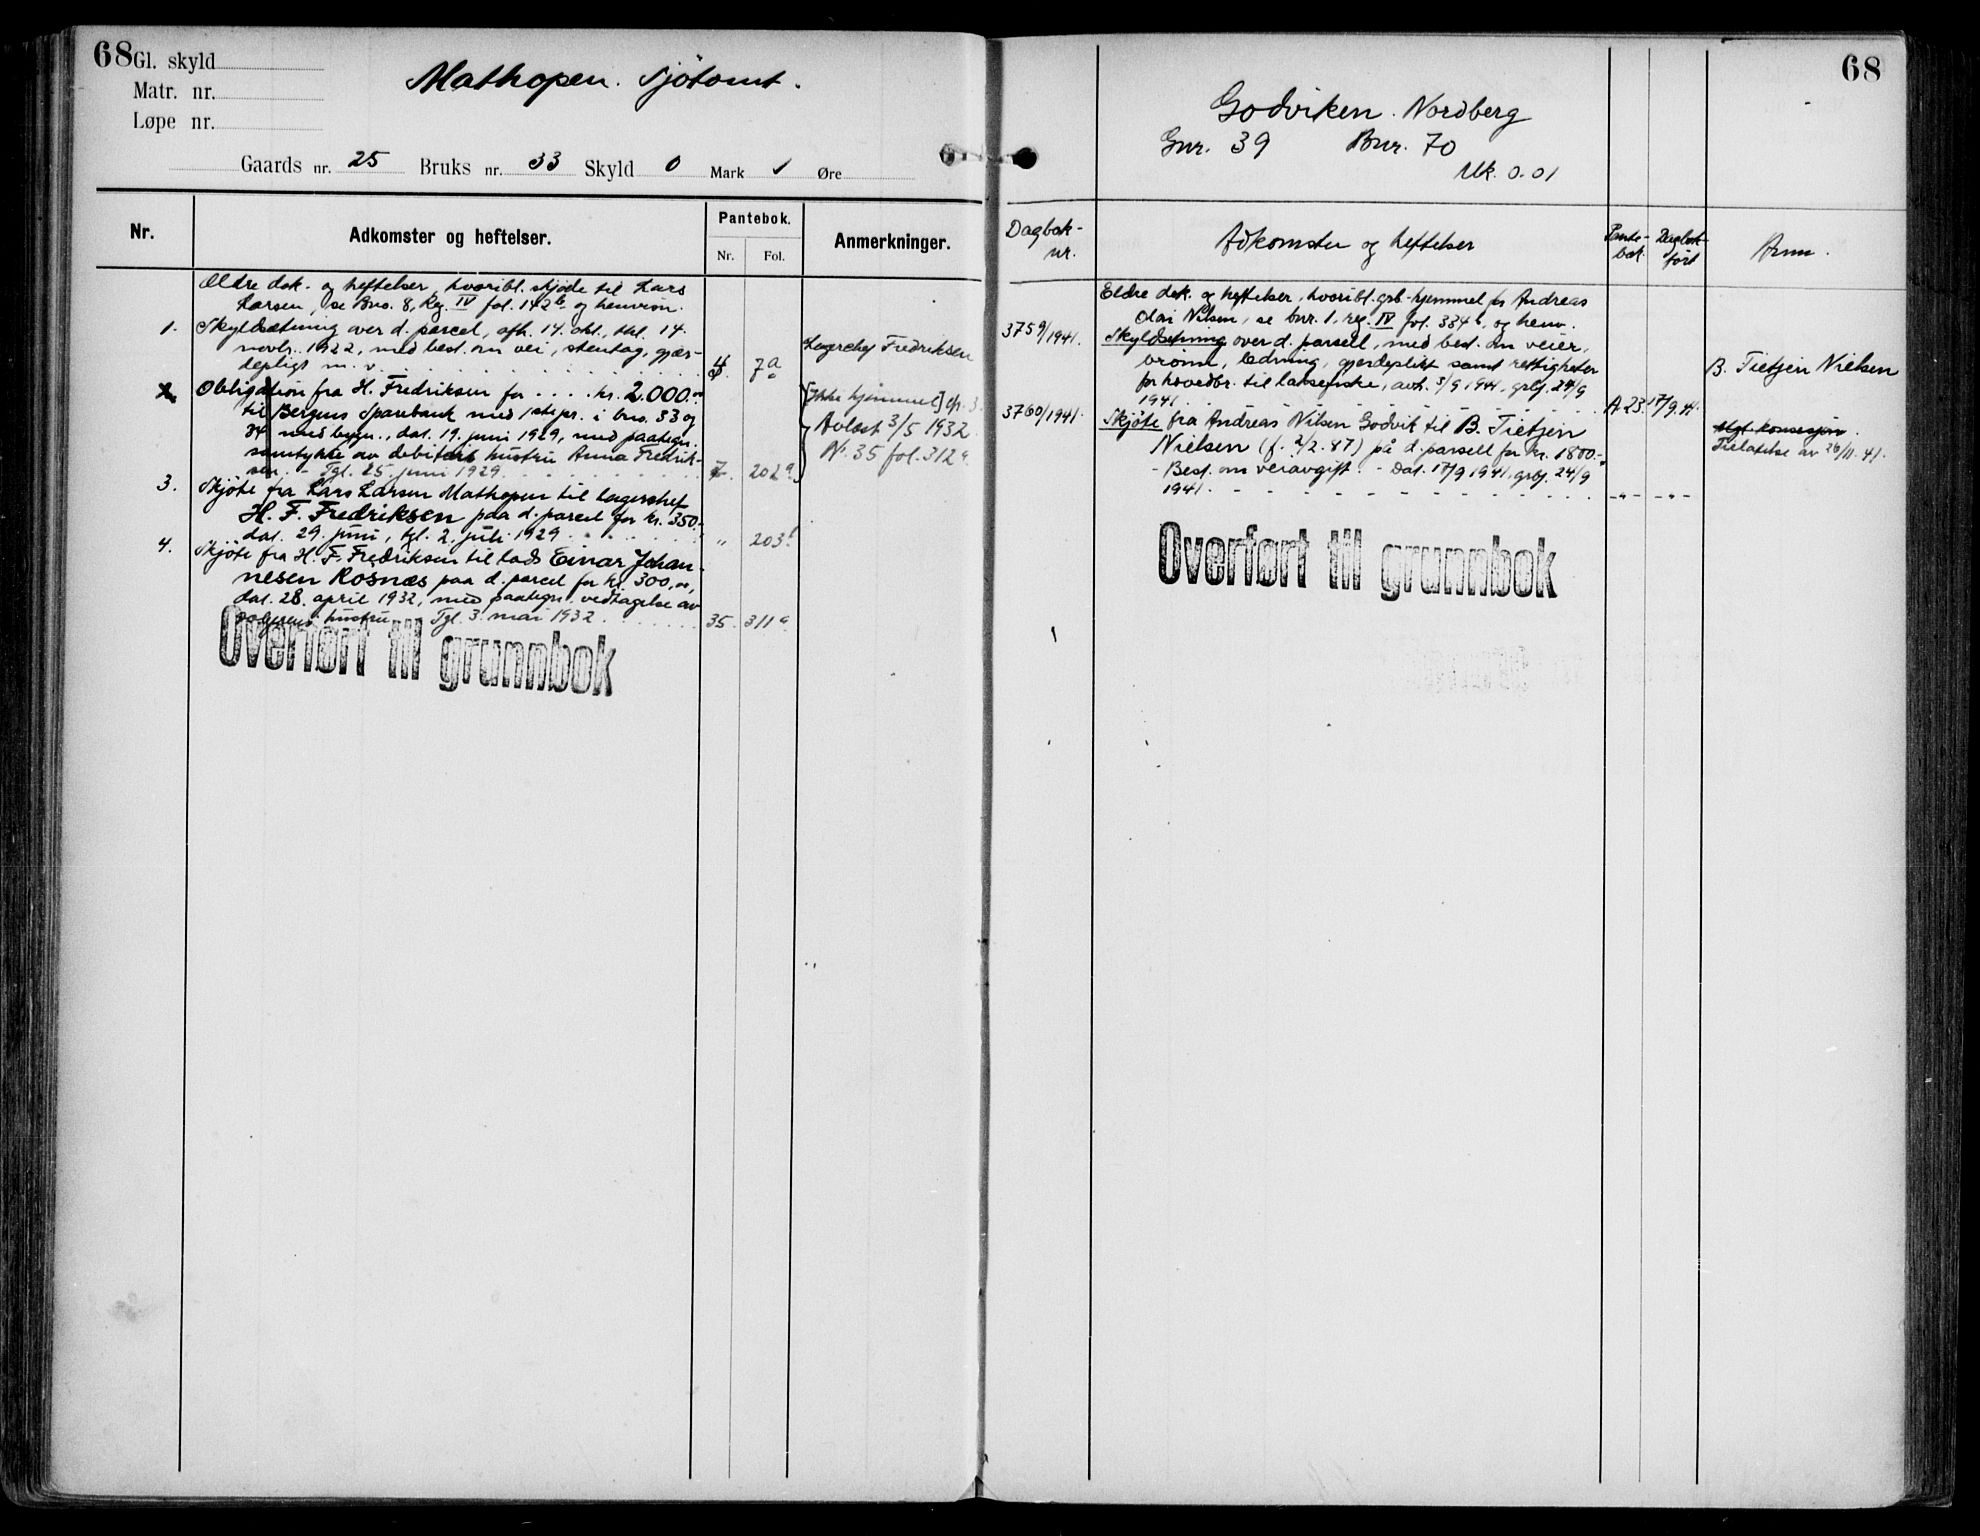 68
Gl. skyld
Matr. nr.
Løpe nr.
Mathopen. Sjötomt.
Gaards nr. 25 Bruks nr. 33 Skyld 0 Mark 1 Øre
Nr.
Adkomster og heftelser.
Pantebok.
Nr. Fol.
Anmerkninger.
Ældre dok. og heftelser, hvoribl. skjöde til Lars
Larsen, se Bno. 8, Reg. IV fol. 142b og henvisn.
1. Skyldsætning over d. parcel, afh. 14. okt., tgl. 14.
novbr. 1922, med best. om vei, stentag, gjær-
depligt m. v. 7a
Lagerchef Fredriksen
2. Obligation fra H. Fredriksen for .... kr. 2.000.00
til Bergens Sparebank med 1ste pr. i bno. 33 og
34 med bygn., dat. 19. juni 1929, med paategn.
samtykke av debitors hustru Anna Fredrik-
sen. - Tgl. 25. juni 1929 7. 202a
[Ikke hjemmel] cfr. 3.
Avlöst 3/5 1932
N. 35 fol. 312a
3. Skjöte fra Lars Larsen Mathopen til lagerchef
H. F. Fredriksen paa d. parcel for kr. 350.-
dat. 29. juni, tgl. 2. juli 1929 " 203b
4. Skjöte fra H. F. Fredriksen til lods Einar Johan-
nesen Rosnæs paa d. parcel for kr. 300,00,
dat. 28. april 1932, med paategn. vedtagelse av
sælgerens hustru. Tgl. 3. mai 1932. 35. 311a
Overført til grunnbok
68
Godviken. Nordberg
Gnr. 39 Bnr. 70
Mk. 0.01
Dagbok-
nr.
Adkomster og heftelser
Pante-
bok
Dagbok-
ført
Anm.
Eldre dok. og heftelser, hvoribl. grb.-hjemmel for Andreas
Olai Nilsen, se bnr. 1, reg. IV fol. 334b, og henv.
3759/1941. Skyldsetning over d. parsell, med best. om veier,
brönn, ledning, gjerdeplikt samt rettigheter
for hovedbr. til laksefiske, avh. 3/9 1941, grbg. 24/9
1941. A. 23. 17/9.41.
B. Tietjen Nielsen
3760/1941. Skjöte fra Andreas Nilsen Godvik til B. Tietjen
Nielsen (f. 2/2.87) på d. parsell for kr. 1800.-
- Best. om veiavgift. - Dat. 17/9 1941, grbg. 24/9
1941. - " - - " -
Mgl. konsesjon.
Tillatelse av 26/11.41.
Overført til grunnbok